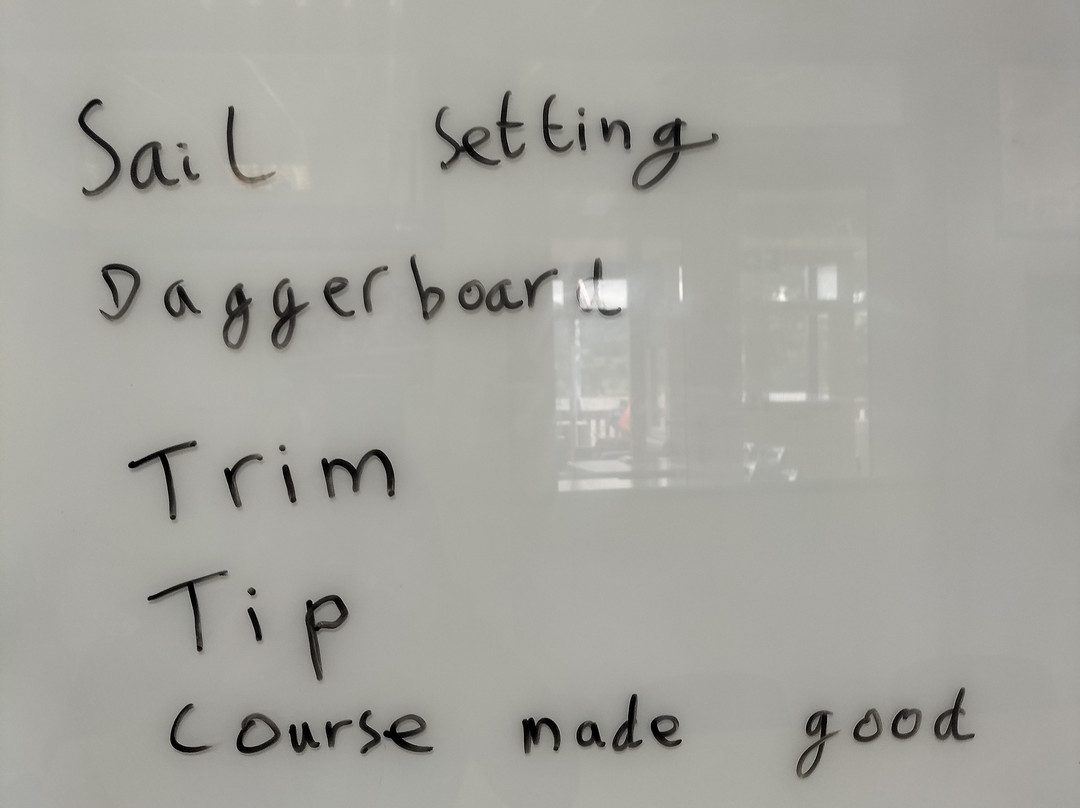 Sail setting
Daggerboard
Trim
Tip
Course made good